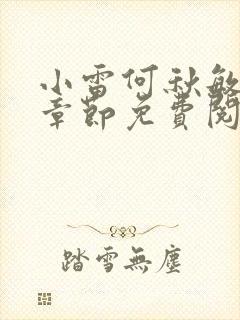 小雷何秋敏
章節免費閱
踏雪無塵